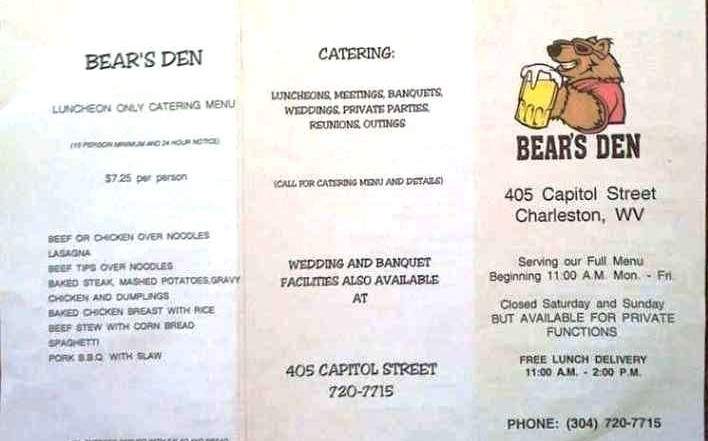 BEAR'S DEN
LUNCHEON ONLY CATERING MENU
(15 PERSON MINIMUM AND 24 HOUR NOTICE)
$7.25 per person
BEEF OR CHICKEN OVER NOODLES
LASAGNA
BEEF TIPS OVER NOODLES
BAKED STEAK, MASHED POTATOES,GRAVY
CHICKEN AND DUMPLINGS
BAKED CHICKEN BREAST WITH RICE
BEEF STEW WITH CORN BREAD
SPAGHETTI
PORK B.B.Q. WITH SLAW
CATERING:
LUNCHEONS, MEETINGS, BANQUETS,
WEDDINGS, PRIVATE PARTIES,
REUNIONS, OUTINGS
(CALL FOR CATERING MENU AND DETAILS)
WEDDING AND BANQUET
FACILITIES ALSO AVAILABLE
AT
405 CAPITOL STREET
720-7715
BEAR'S DEN
405 Capitol Street
Charleston, WV
Serving our Full Menu
Beginning 11:00 A.M. Mon. - Fri.
Closed Saturday and Sunday
BUT AVAILABLE FOR PRIVATE
FUNCTIONS
FREE LUNCH DELIVERY
11:00 A.M. - 2:00 P.M.
PHONE: (304) 720-7715